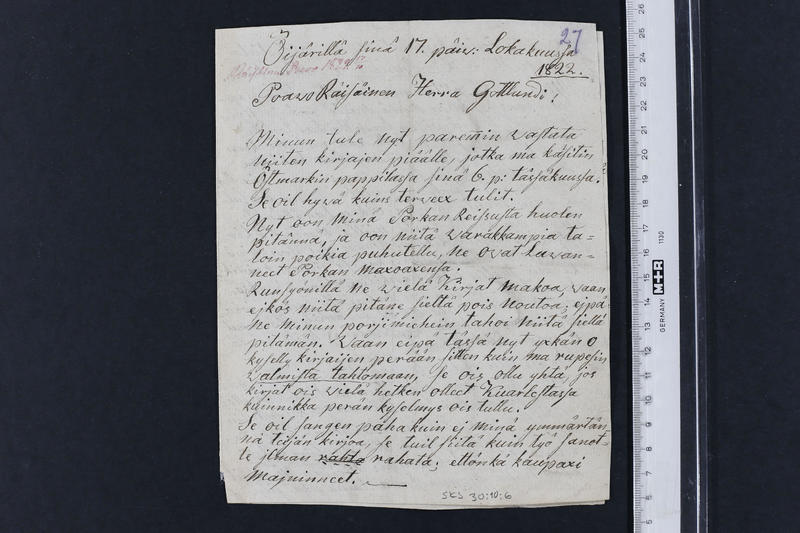 27
Öijärillä sinä 17. päiv: Lokakuussa
1822.
Prawo Räisäinen Herra Gottlundi!
Minun tule nyt paremin vastata
niiten kirjajen piäälle, jotka ma käsitin
Östmarkin pappilassa sinä 6. p. tässäkuussa.
Se oil hywä kuins tervex tulit.
Nyt oon minä Porkan Reissusta huolen
pitännä, ja oon niitä warakkampia ta=
loin poikia puhutellu, he ovat Luwan=
neet Porkan maxoaxensa.
Runsyönillä ne wielä Kirjat makoa, vaan
ejkös niitä pitäne sieltä pois noutoa; ejpä
he minun porjimiehein tahoi niitä siellä
pitämän. Vaan eipä tässä nyt ykän o
kyselly kirjaijen perään sitten kuin ma rupesin
walmista tahtomaan, Se ois ollu yhtä, jos
kirjat ois wielä hetken olleet Kuarlestassa
kuinnikka perän kyselmys ois tullu.
Se oil sangen paha kuin ej minä ymmärtän=
nä teijän kirjoa, se tuil siitä kuin työ sanot=
te ilman rahata; ettönkä kaupaxi
mainineet.
SKS 30:10:6
GERMANY M+R 1130
5
6
7
8
9
10
11
12
13
14
15
16
17
18
19
20
21
22
23
24
25
26